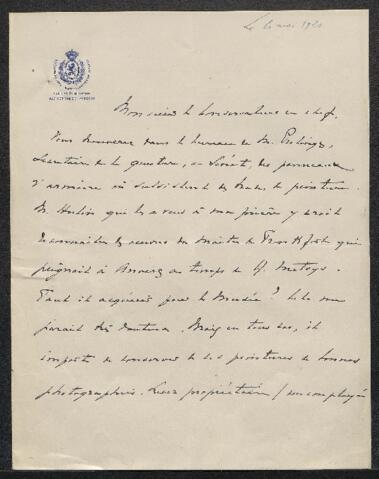 Le 6 mai 1920
Monsieur le Conservateur en chef,
Vous trouverez dans le bureau de M.
Secrétaire de la questure, au Sénat, des panneaux
d'armoire où subsistent des traces de peinture.
M. Hulin qui les a vus à ma prière y croit
reconnaître les œuvres du Maître de Francfort qui
peignait à Anvers au temps de Q. Metsys.
Faut il acquérir pour le Musée ? Cela me
paraît très douteux. Mais en tous cas, il
importe de conserver de ces peintures de bonnes
photographies. Leur propriétaire (un employé